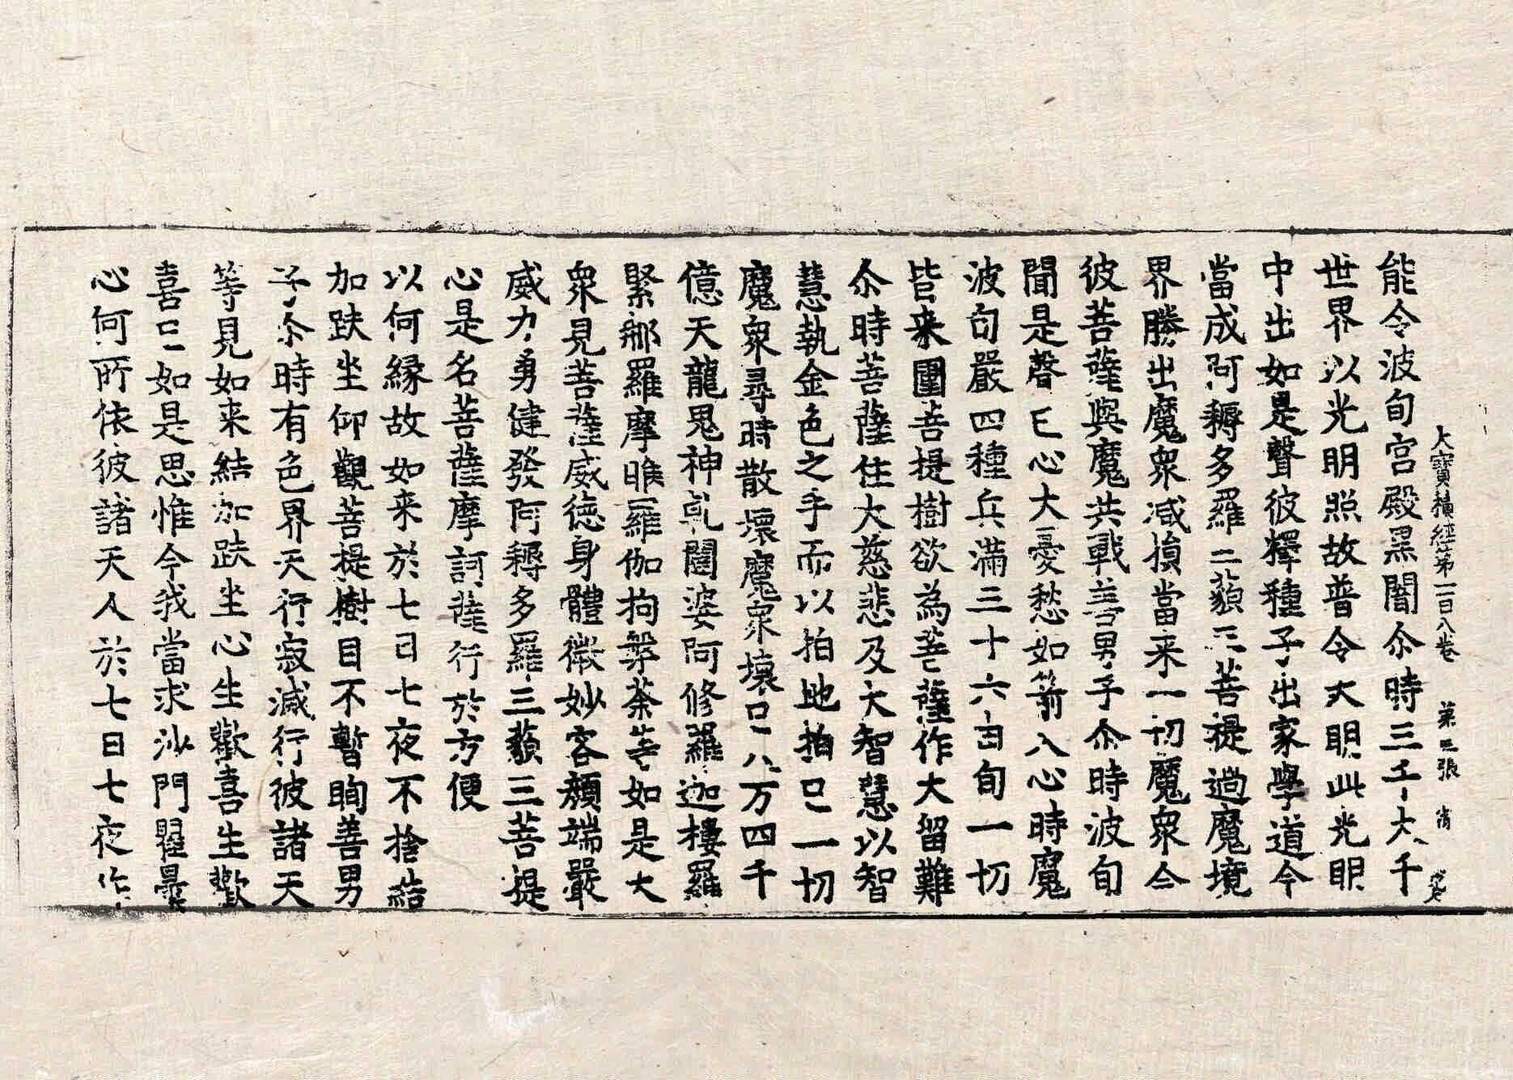 大寳積經第一百八卷　第三張　當
能令波旬宫殿黑闇尒時三千大千
世界以光明照故普令大明此光明
中出如是聲彼釋種子出家學道今
當成阿耨多羅三藐三菩提過魔境
界勝出魔衆减損當来一切魔衆今
彼菩薩與魔共戰善男子尒時波旬
聞是聲已心大憂愁如箭入心時魔
波旬嚴四種兵滿三十六由旬一切
皆来圍菩提樹欲為菩薩作大留難
尒時菩薩住大慈悲及大智慧以智
慧執金色之手而以拍地拍已一切
魔衆尋時散壞魔衆壞已八万四千
億天龍鬼神乹闥婆阿修羅迦樓羅
緊那羅摩睺羅伽拘槃荼等如是大
衆見菩薩威德身體微妙容顏端嚴
威力勇健發阿耨多羅三藐三菩提
心是名菩薩摩訶薩行於方便
以何縁故如来於七日七夜不捨結
加趺坐仰觀菩提樹目不暫眴善男
子尒時有色界天行寂滅行彼諸天
等見如来結加趺坐心生歡喜生歡
喜已如是思惟今我當求沙門瞿曇
心何所依彼諸天人於七日七夜作